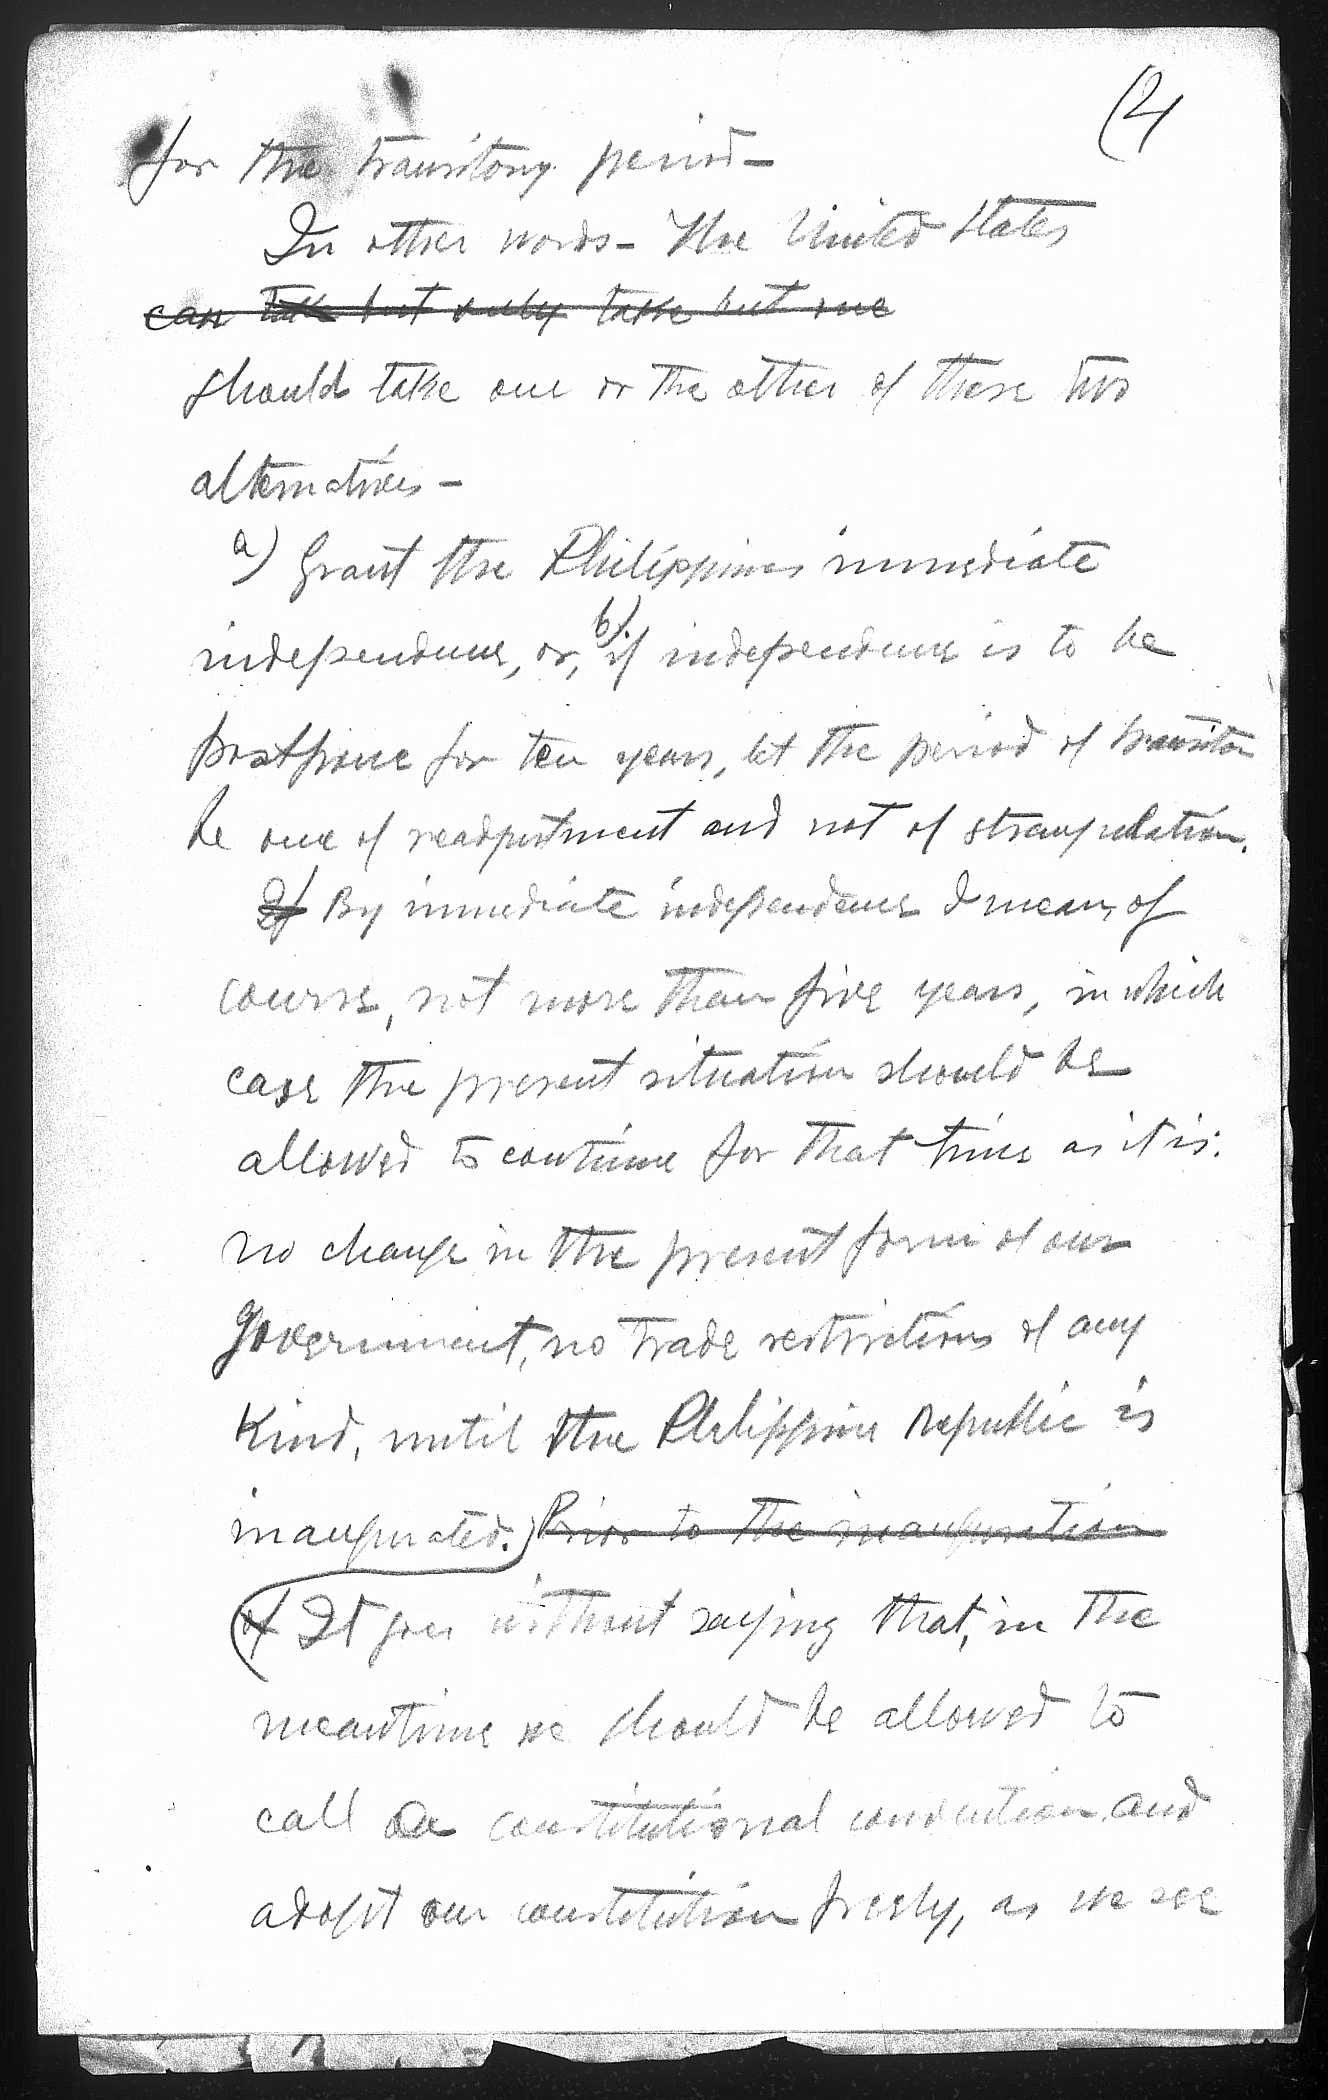 (2
for the transitory period—
In other words— The United States
can take but only take but one
should take one or the other of these two
alternatives—
a) Grant the Philippines immediate
independence, or, b) if independence is to be
postpone for ten years, let the period of transition
be one of readjustment and not of strangulation.
a) By immediate independence I mean, of
course, not more than five years, in which
case the present situation should be
allowed to continue for that time as it is:
no change in the present form of our
Government, no trade restrictions of any
kind, until the Philippine Republic is
inaugurated. Prior to the inauguration
of It goes without saying that, in the
meantime we should be allowed to
call a constitutional convention and
adopt our constitution freely, as we see